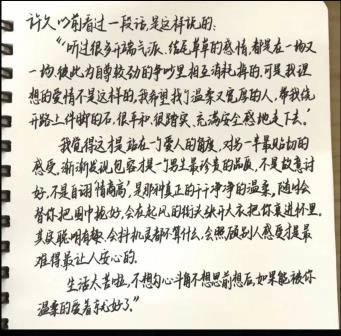 许久以前看过一段话,是这样说的:
“听过很多开端气派、结尾草草的感情,都是在一场又
一场彼此为自尊较劲的争吵里相互消耗掉的,可是我理
想的爱情不是这样的,我希望找个温柔又宽厚的人,带我绕
开路上绊脚的石,很平和,很踏实,充满安全感地走下去。”
我觉得这才是站在一个爱人的角度,对另一半最贴切的
感受。渐渐发现包容才是一个男生最珍贵的品质,不是故意讨
好,不是自诩“情商高”,是那种真正的干干净净的温柔,随时会
替你把围巾拢好,会在起风的街头张开大衣把你裹进怀里。
其实聪明有趣、会抖机灵都不算什么,会照顾别人感受才是最
难得最让人安心的。
生活太苦啦,不想勾心斗角不想思前想后,如果能被你
温柔的爱着就好了。”